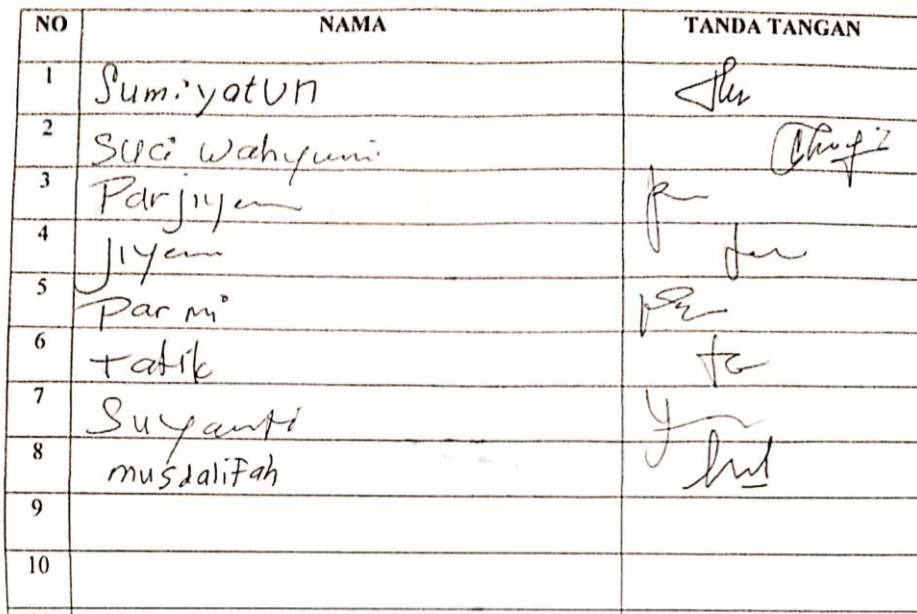 NO NAMA TANDA TANGAN
1 Sumiyatun
2 Suci Wahyuni
3 Parjiyem
4 Jiyem
5 Parmi
6 Tatik
7 Suyanti
8 musdalifah
9
10